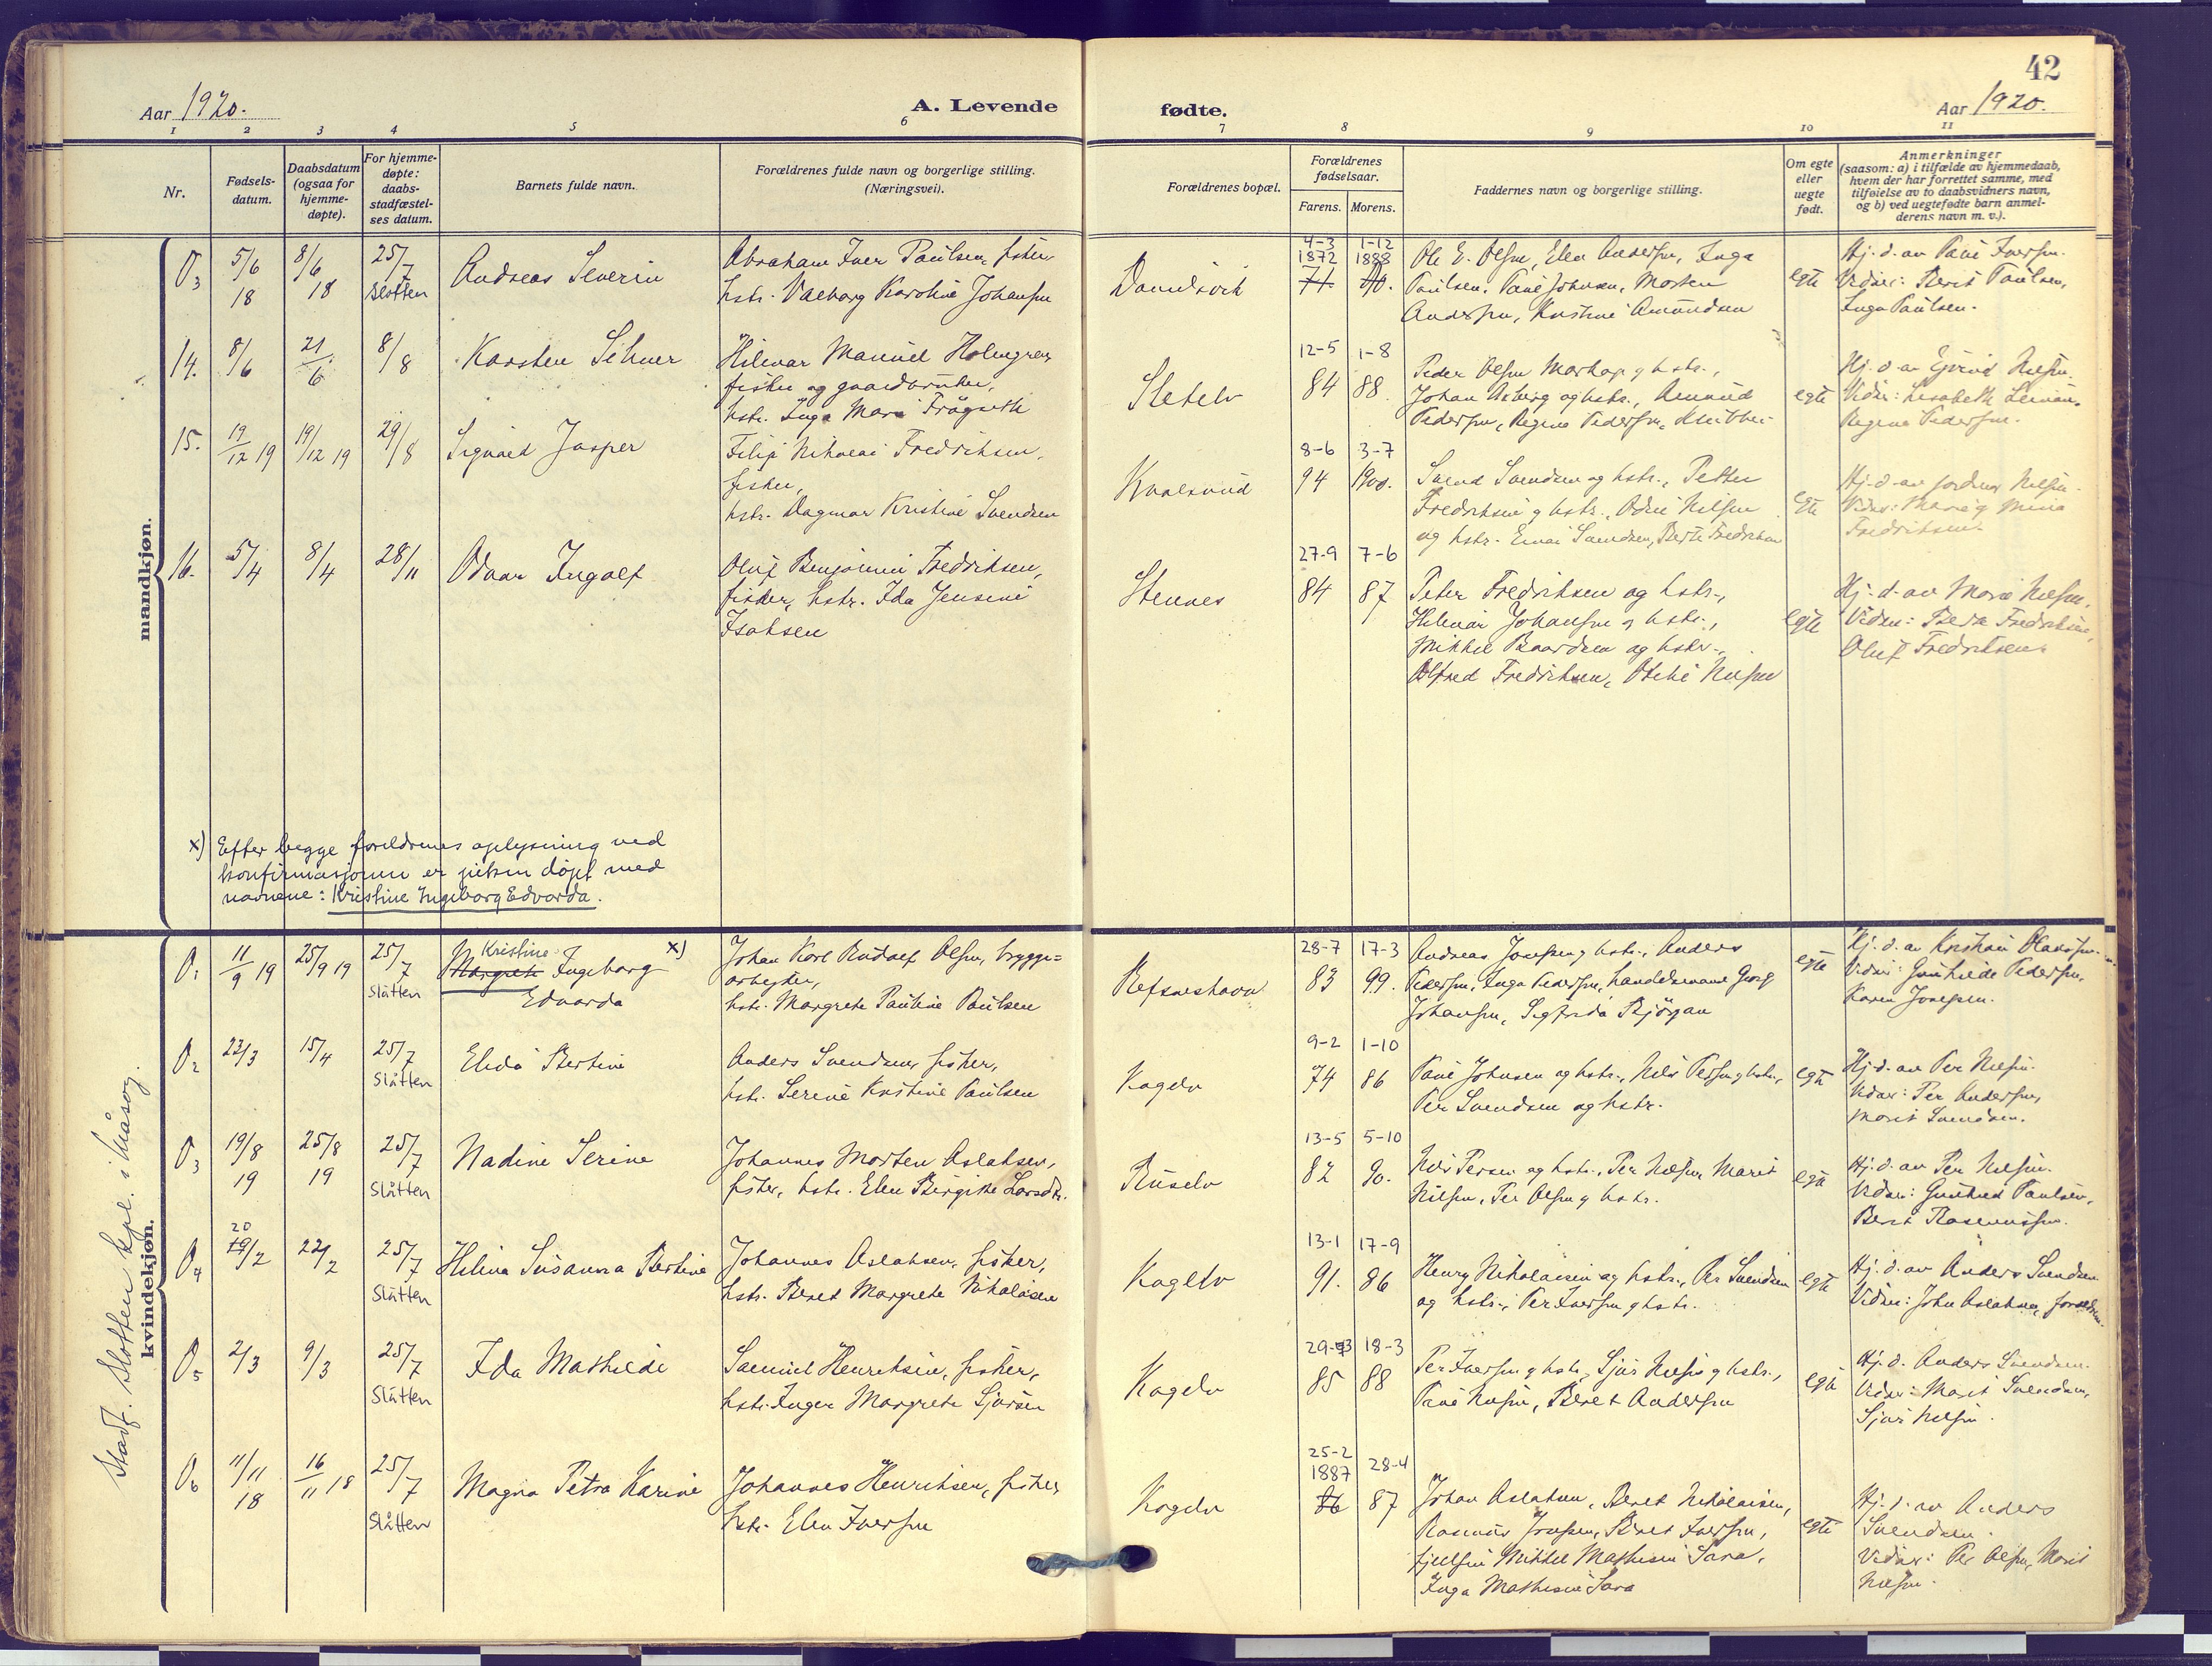 42
Aar 1920.
A. Levende
fødte.
Aar 1920.
1 2 3 4 5 6 7 8 9 10 11
Nr.
Fødsels-
datum.
Daabsdatum
(ogsaa for
hjemme-
døpte).
For hjemme-
døpte:
daabs-
stadfæstel-
ses datum.
Barnets fulde navn.
Forældrenes fulde navn og borgerlige stilling.
(Næringsvei).
Forældrenes bopæl.
Forældrenes
fødselsaar.
Farens. Morens.
Faddernes navn og borgerlige stilling.
Om egte
eller
uegte
født.
Anmerkninger
(saasom: a) i tilfælde av hjemmedaab,
hvem der har forrettet samme, med
tilføielse av to daabsvidners navn,
og b) ved uegtefødte barn anmel-
derens navn m. v.).
mandkjøn.
3
5/6 18
8/6 18
25/7
Slotten
Andreas Severin
Abraham Iver Paulsen, fisker
hstr. Valborg Karoline Johansen
4-3 1872 71.
1-12 1888
Ole E. Olsen, Elen Andersen, Inga
Paulsen, Paul Johnsen, Morten
Andersen, Kristine Amundsen
egte
Hj. d. av Paul Iversen.
Vidner: Berit Paulsen,
Inga Paulsen.
14.
8/6
21/6
8/8
Karsten
Hilmar Manuel Holmgren
fisker og gaardbruker,
hstr. Inga Marie
12-5 84
1-8 88.
Peder Olsen og hstr.,
Johan og hstr., Amund
Pedersen, Regine Pedersen
egte
Hj. d. av Nilsen.
Vidner: Lisabeth
Regine Pedersen.
15.
19/12 19
19/12 19
29/8
Sigvald Jasper
Filip Nikolai Fredriksen,
fisker,
hstr. Dagmar Kristine Svendsen
Kvalsund
8-6 94
3-7 1900.
Svend Svendsen og hstr., Petter
Fredriksen og hstr., Nilsen
og hstr. Svendsen, Fredriksen
egte
Hj. d. av Nilsen.
Vidner: Marie og
Fredriksen.
16.
5/4
8/4
28/11
Odvar Ingolf
Oluf Benjamin Fredriksen,
fisker, hstr. Ida Jensine
Isaksen
Stennes
27-9 84
7-6 87
Peter Fredriksen og hstr.,
Hilmar Johansen og hstr.,
Mikkel Baardsen og hstr.,
Alfred Fredriksen, Nilsen
egte
Hj. d. av Marie Nilsen.
Vidner: Fredriksen,
Oluf Fredriksen.
x) Efter begge foreldrenes oplysning ved
konfirmasjonen er piken döpt med
navnene: Kristine Ingeborg Edvarda.
kvindekjøn.
Stadf. Slotten kpl. i Måsøy.
1
11/9 19
25/9 19
25/7
Slåtten
Kristine x)
Margrete Ingeborg
Edvarda
Johan Karl Rudolf Olsen, brygge=
arbeider,
hstr. Margrete Pauline Paulsen
Refsneshavn
28-7 83
17-3 99.
Andreas Josefsen og hstr., Anders
Pedersen, Inga Pedersen, handelsmand Georg
Johansen, Sigfrida Bjørgan
egte
Hj. d. av Kristian Olaussen.
Vidner: Gunhilde Pedersen,
Karen Josefsen.
2
23/3
15/4
25/7
Slåtten
Elida Bertine
Anders Svendsen, fisker,
hstr. Serine Kristine Paulsen
Kogelv
9-2 74
1-10 86
Paul Johnsen og hstr., Nils Persen og hstr.,
Per Svendsen og hstr.
egte
Hj. d. av Per Nilsen.
Vidner: Per Andersen,
Marit Svendsen.
3
19/8 19
25/8 19
25/7
Slåtten
Nadine Serine
Johannes Morten Aslaksen,
fisker, hstr. Elen Birgitte Larsdtr.
Ruselv
13-5 82
5-10 90.
Nils Persen og hstr., Per Nilsen, Marit
Nilsen, Per Olsen og hstr.
egte
Hj. d. av Per Nilsen.
Vidner: Gunhild Paulsen,
Berit Rasmussen.
4
20
19/2
22/2
25/7
Slåtten
Helina Susanna Bertine
Johannes Aslaksen, fisker,
hstr. Beret Margrete Nikolaisen
Kogelv
13-1 91.
17-9 86
Henry Nikolaisen og hstr., Per Svendsen
og hstr., Per Iversen og hstr.
egte
Hj. d. av Anders Svendsen
Vidner: John Aslaksen,
5
2/3
9/3
25/7
Slåtten
Ida Mathilde
Samuel Henriksen, fisker,
hstr. Inger Margrete Sjursen
Kogelv
29-3 85
18-3 88
Per Iversen og hstr., Sjur Nilsen og hstr.,
Paul Nilsen, Beret Andersen
egte
Hj. d. Anders Svendsen.
Vidner: Marit Svendsen,
Sjur Nilsen.
6
11/11 18
16/11 18
25/7
Slåtten
Magna Petra Karine
Johannes Henriksen, fisker,
hstr. Elen Iversen
Kogelv
25-2 1887 86
28-4 87
Johan Aslaksen, Beret Nikolaisen,
Rasmus Josefsen, Beret Iversen,
fjellfin Mikkel Mathisen Sara,
Inga Mathisen Sara
egte
Hj. d. av Anders
Svendsen.
Vidner: Per Olsen, Marit
Nilsen.